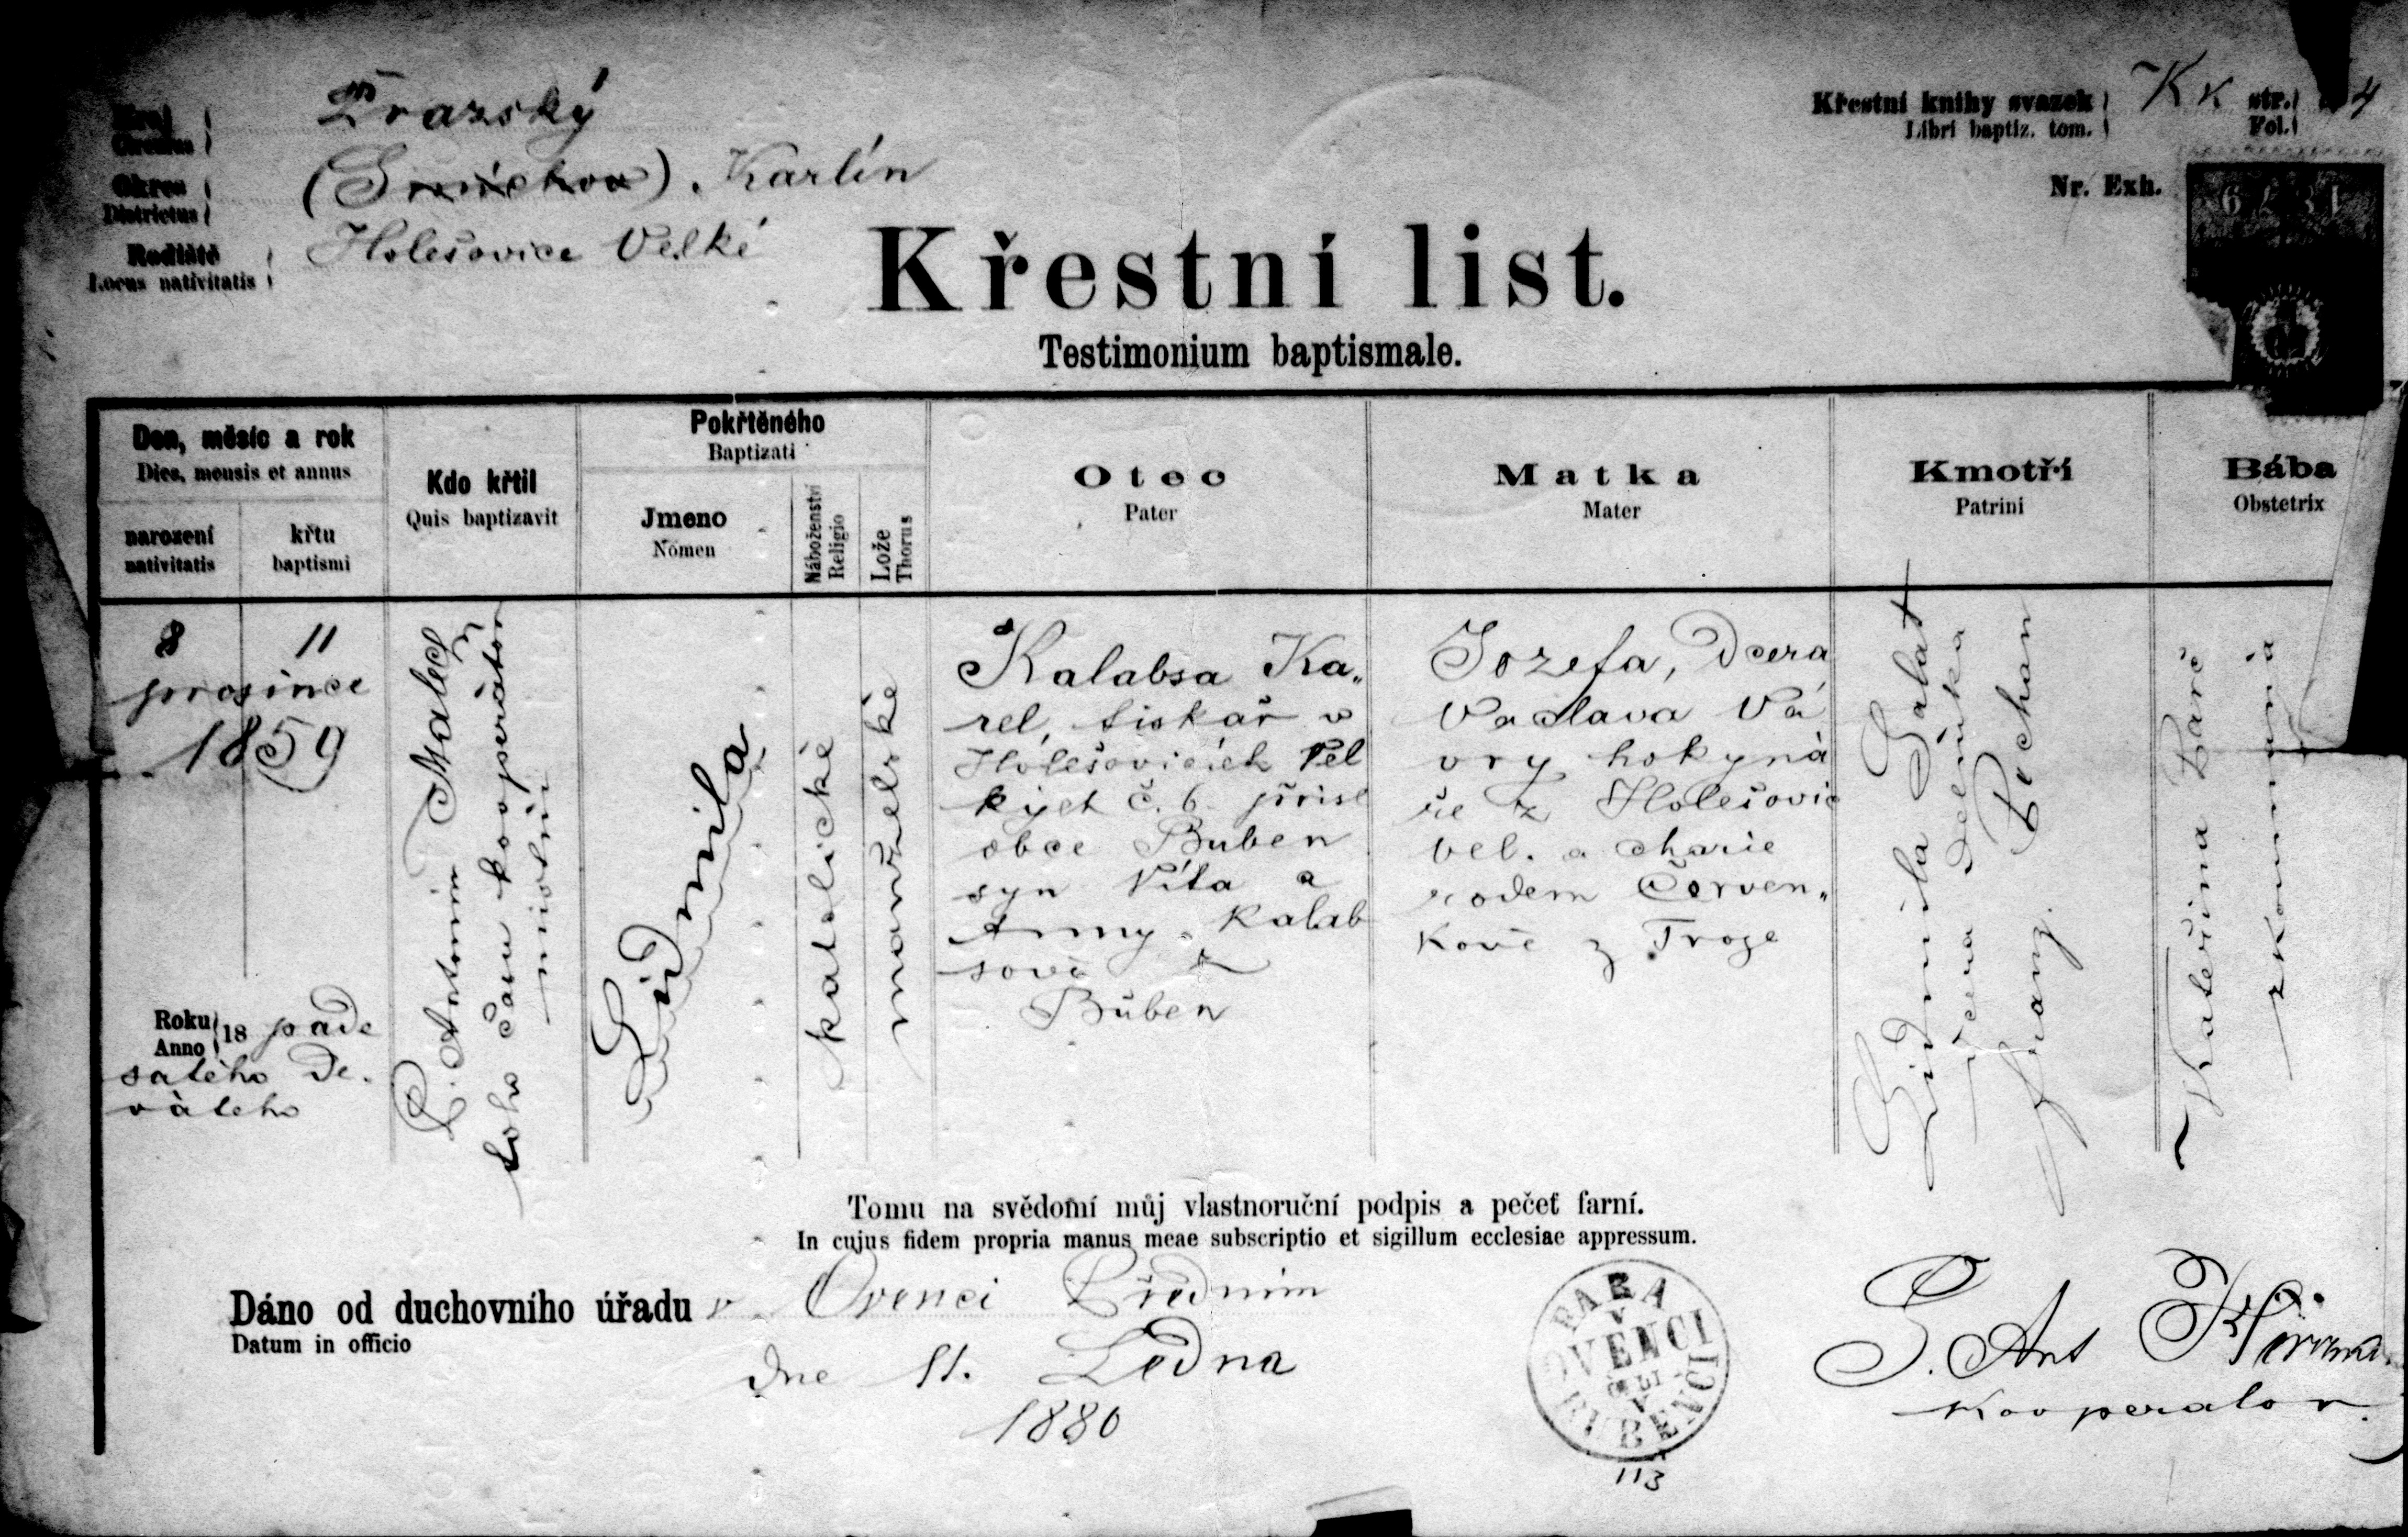 Kraj
Circulus
Pražský
Okres
Districtus
(Smíchov). Karlín
Rodiště
Locus nativitatis
Holešovice Velké
Křestní knihy svazek
Libri baptiz. tom.
Kk str.
Fol.
4
Nr. Exh.
Křestní list.
Testimonium baptismale.
Den, měsíc a rok
Dies, mensis et annus
narození
nativitatis
křtu
baptismi
Kdo křtil
Quis baptizavit
Pokřtěného
Baptizati
Jmeno
Nomen
Náboženství
Religio
Lože
Thorus
Otec
Pater
Matka
Mater
Kmotři
Patrini
Bába
Obstetrix
8 11
prosince
1859
Roku
Anno
18 pade
sátého de.
vátého
P. Antonín Malec
toho času kooperator
místní
Lidmila
katolické
manželské
Kalabsa Ka„
rel, tiskař v
Holešovicích Vel
kých č. 6 přísl
obce Buben
syn Víta a
Anny Kalab
sové z
Buben
Jozefa, Dcera
Václava Vá
vry hokyná
ře z Holešovic
vel. a Marie
rodem Červen„
kové z Troje
Lidmila Galat
dcera dělníka
Franz. Pechan
Kateřina
zkoumaná
Tomu na svědomí můj vlastnoruční podpis a pečeť farní.
In cujus fidem propria manus meae subscriptio et sigillum ecclesiae appressum.
Dáno od duchovního úřadu v Ovenci Předním
Datum in officio
dne 11. Ledna
1880
FARA
V
OVENCI
ČILI
V
BUBENČI
113
P. Ant
Kooperator.